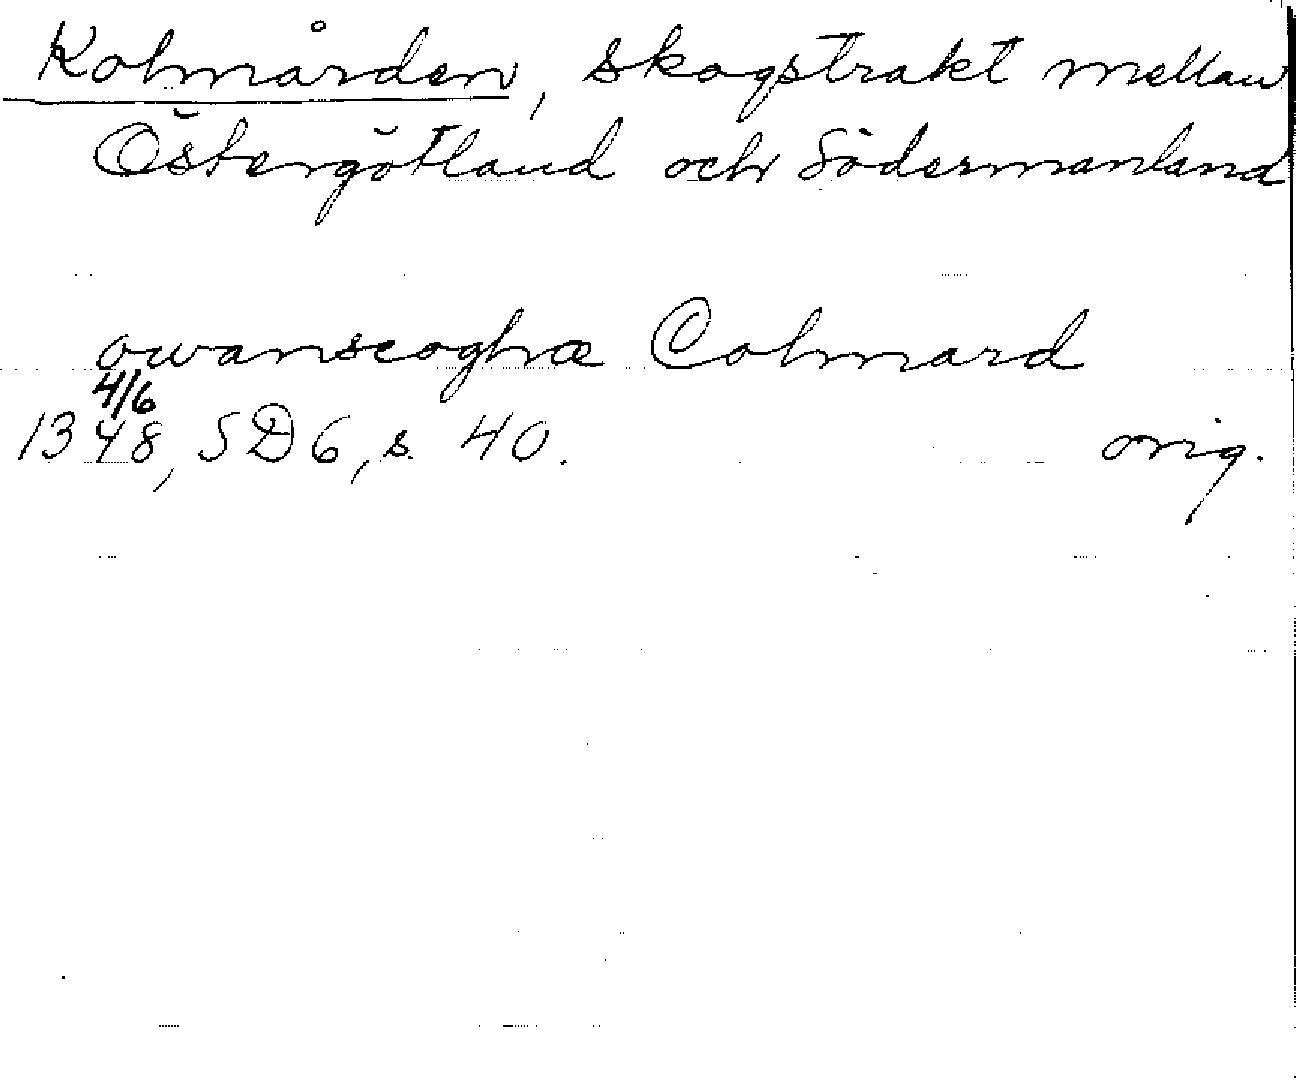 Kolmården, skogstrakt mellan
Östergötland och Södermanland
owanscoghæ Colmard
4/6
1348, SD6, s. 40. orig.